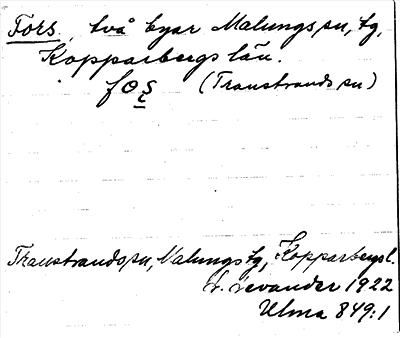 Fors, två byar Malungs sn, tg,
Kopparbergs län.
fOs̱ (Transtrands sn)
Transtrands sn, Malungs tg, Kopparbergs l.
L. Levander 1922
Ulma 849:1